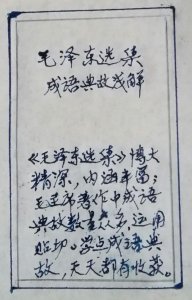 毛泽东选集
成语典故浅解
《毛泽东选集》博大
精深，内涵丰富；
毛主席著作中成语
典故数量众多，运用
贴切。学点成语典
故，天天都有收获。